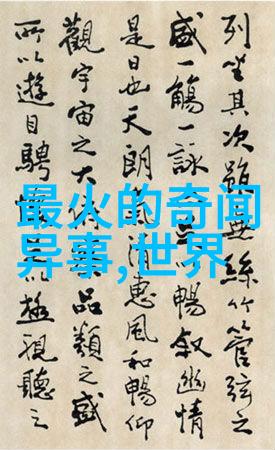 列坐其次雖無絲竹管弦之
盛一觴一詠以暢叙幽情
是日也天朗氣清惠風和暢仰
觀宇宙之大品類之盛
所以遊目騁以極視聽之
最火的奇闻
异事,世界